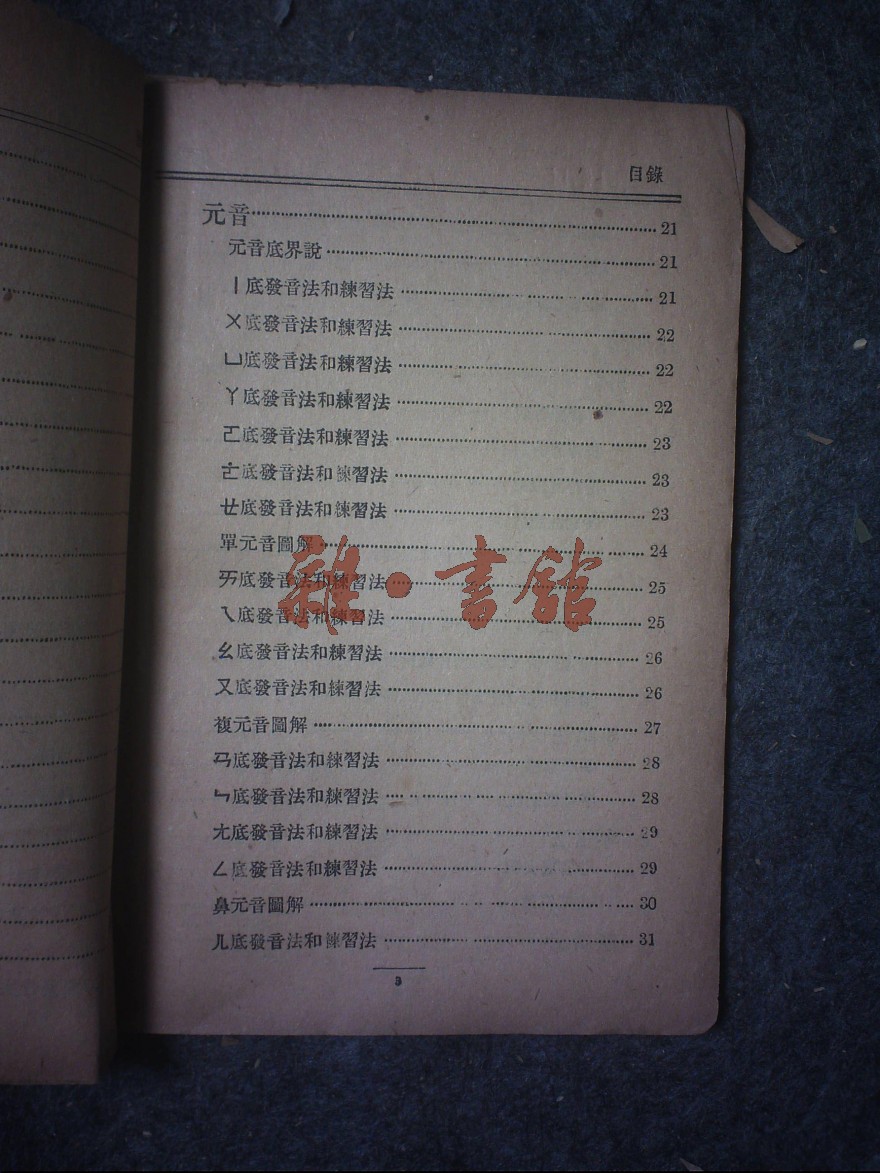 目錄
元音……21
元音底界說……21
丨底發音法和練習法……21
ㄨ底發音法和練習法……22
ㄩ底發音法和練習法……22
ㄚ底發音法和練習法……22
ㄛ底發音法和練習法……23
ㄜ底發音法和練習法……23
ㄝ底發音法和練習法……23
單元音圖解……24
ㄞ底發音法和練習法……25
ㄟ底發音法和練習法……25
ㄠ底發音法和練習法……26
ㄡ底發音法和練習法……26
複元音圖解……27
ㄢ底發音法和練習法……28
ㄣ底發音法和練習法……28
ㄤ底發音法和練習法……29
ㄥ底發音法和練習法……29
鼻元音圖解……30
ㄦ底發音法和練習法……31
3
雜·書館